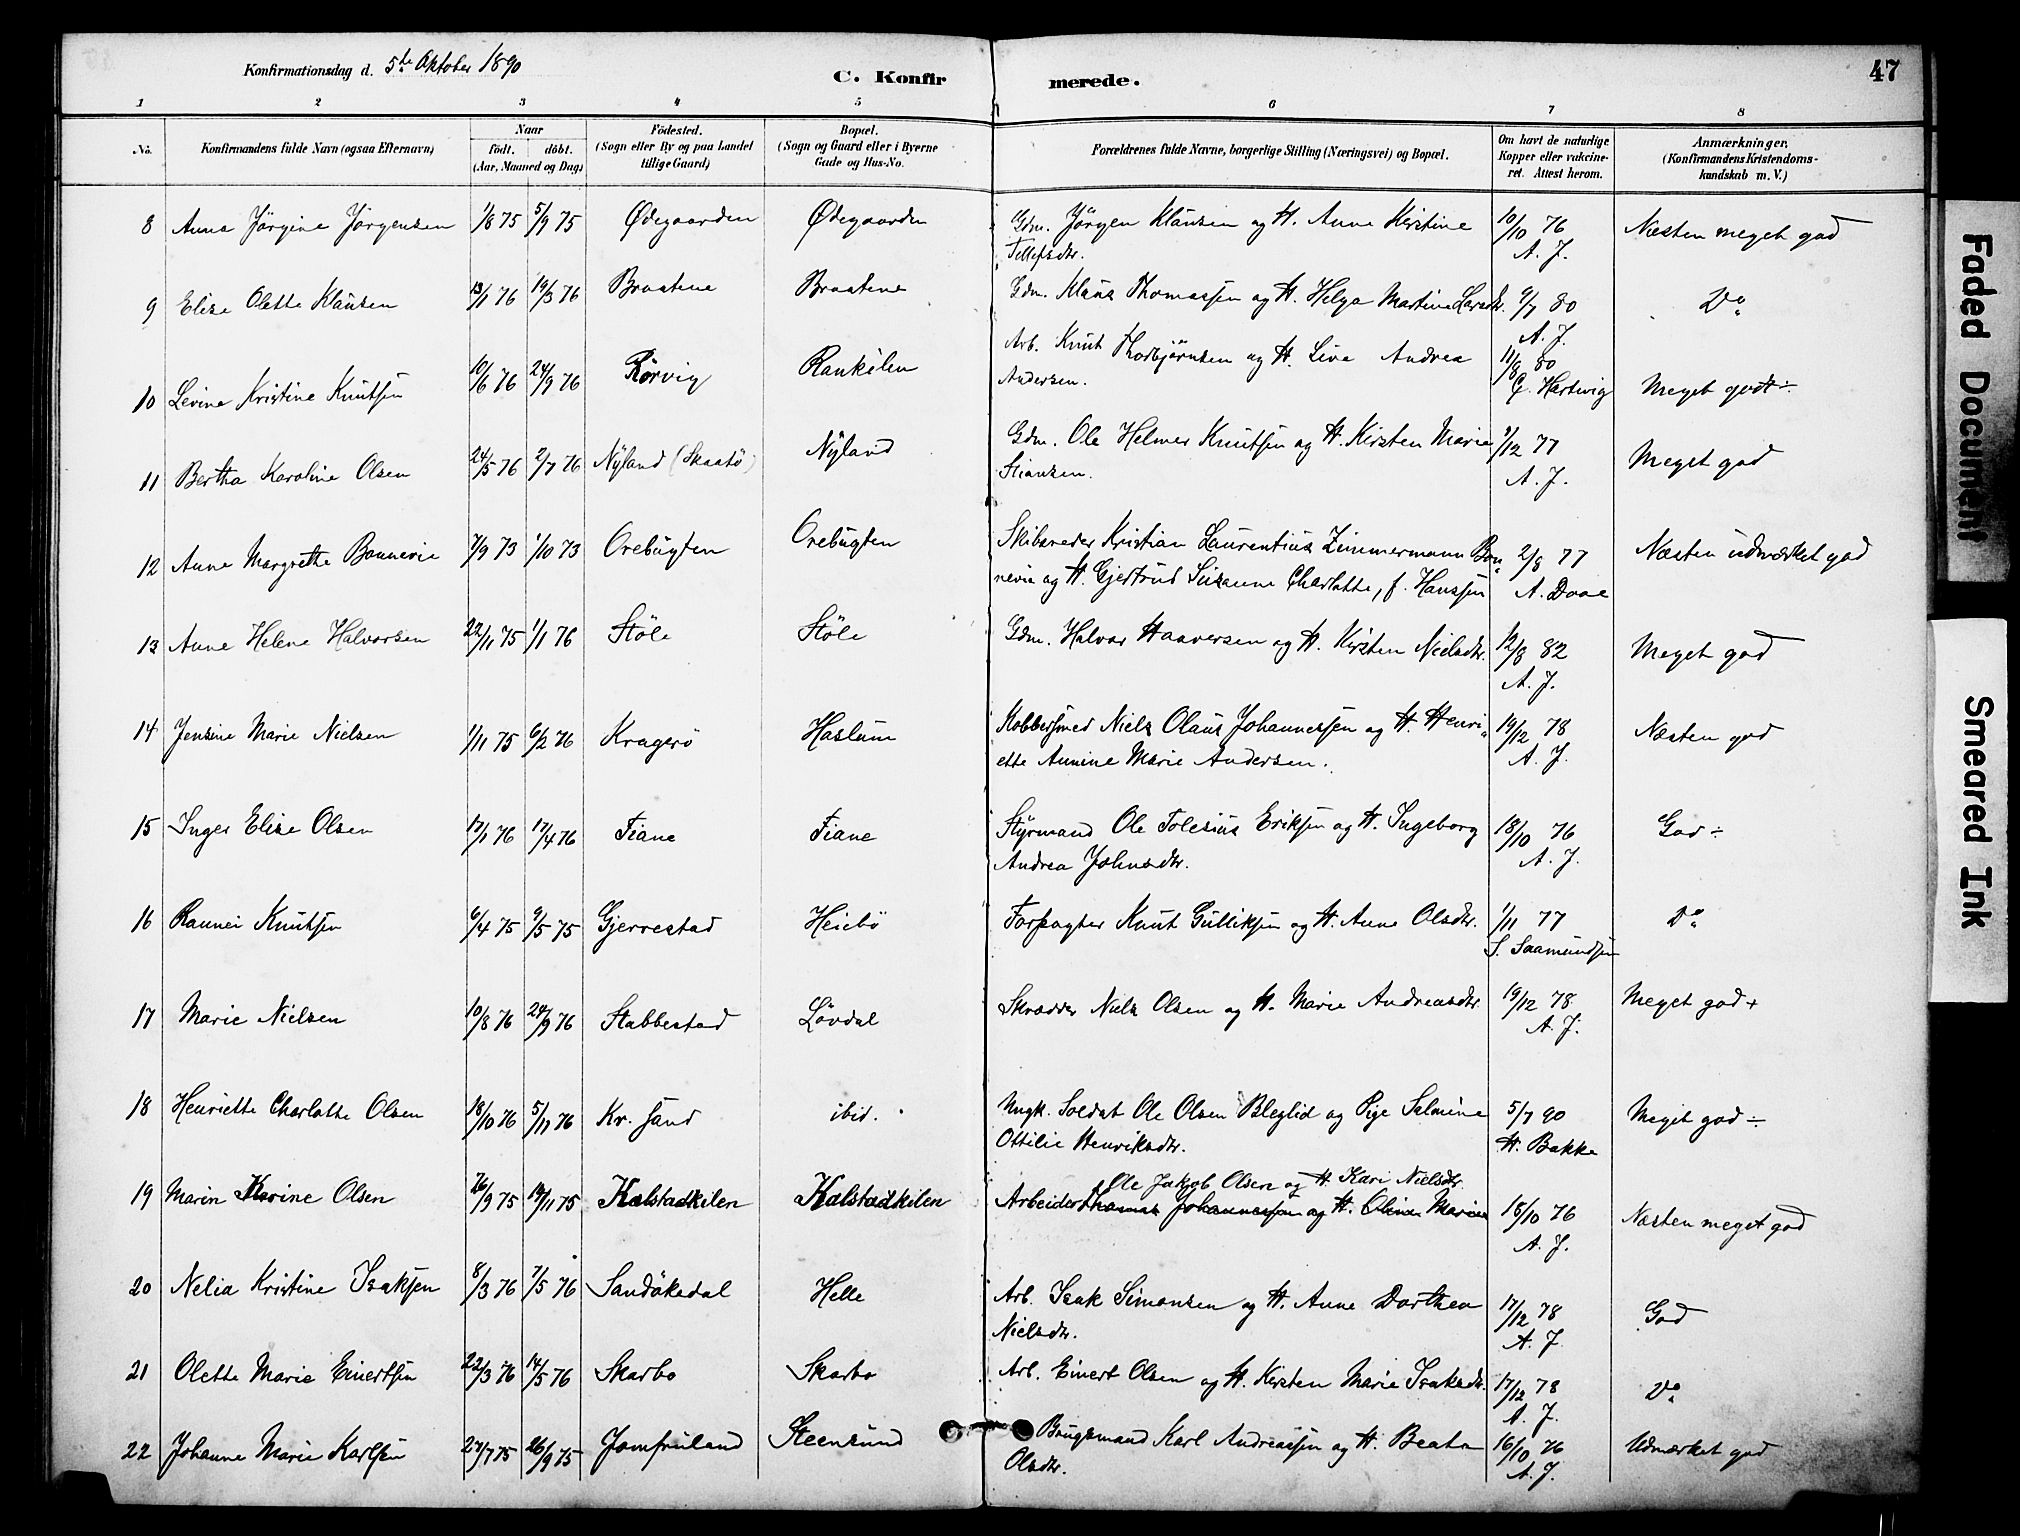 Konfirmationsdag d. 5te Oktober 1890
C. Konfirmerede.
47
1 2 3 4 5 6 7 8
No.
Konfirmandens fulde Navn (ogsaa Efternavn)
Naar
födt. döbt.
(Aar, Maaned og Dag)
Födested.
(Sogn eller By og paa Landet tillige Gaard)
Bopæl.
(Sogn og Gaard eller i Byerne Gade og Hus-No.
Forældrenes fulde Navne, borgerlige Stilling (Næringsvei) og Bopæl.
Om havt de naturlige Kopper eller vakcineret. Attest herom.
Anmærkninger.
(Konfirmandens Kristendomskundskab m. V.)
8 Anna Jörgine Jörgensen 1/8 75 5/9 75 Ødegaarden Ødegaarden Gdm. Jörgen Klausen og H. Anne Kirstine 10/10 76 Næsten meget god
Tellefsdtr. A. J.
9 Elise Olette Klausen 13/1 76 19/3 76 Braatene Braatene Gdm. Klaus Thomassen og H. Helga Martine Larsdtr. 9/7 80 Do
A. J.
10 Levine Kristine Knutsen 10/6 76 24/9 76 Rörvig Rankilen Arb. Knut Thorbjörnsen og H. Live Andrea 11/8 80 Meget godt ÷
Andersen. G. Hartwig
11 Bertha Karoline Olsen 24/5 76 2/7 76 Nyland (Skaatö) Nyland Gdm. Ole Helmer Knutsen og H. Kirsten Marie 9/12 77 Meget god
Stiansen. A. J.
12 Anne Margrethe Bonnevie 7/9 73 1/10 73 Orebugten Orebugten Skibsreder Kristian Laurentius Zimmermann Bon- 2/8 77 Næsten udmærket god
nevie og H. Gjertrud Susanne Charlotte, f. Hanssen A. Daae
13 Anne Helene Halvorsen 22/11 75 1/1 76 Støle Støle Gdm. Halvor Haaversen og H. Kirsten Nielsdtr. 12/8 82 Meget god
A. J.
14 Jensine Marie Nielsen 1/11 75 6/2 76 Kragerö Haslum Kobbersmed Niels Olaus Johannessen og H. Henri- 19/12 78 Næsten god
ette Annine Marie Andersen. A. J.
15 Inger Elise Olsen 17/1 76 17/4 76 Fiane Fiane Styrmand Ole Tolesius Eriksen og H. Ingeborg 18/10 76 God ÷
Andrea Johnsdtr. A. J.
16 Rannei Knutsen 6/4 75 9/5 75 Gjerrestad Heiebö Forpagter Knut Gulliksen og H. Anne Olsdtr. 1/11 77 Do
S. Saamundsen
17 Marie Nielsen 10/8 76 24/9 76 Stabbestad Lövdal Skrædder Niels Olsen og H. Marie Andreasdtr. 19/12 78 Meget god +
A. J.
18 Henriette Charlotte Olsen 18/10 76 5/11 76 Kr. sand ibid. Ungk. Soldat Ole Olsen Bleglid og Pige Salmine 5/7 90 Meget god ÷
Ottilie Henriksdtr. H. Bakke
Ole Jakob Olsen og H. Kari Nielsdtr.
19 Marin Karine Olsen 26/9 75 14/11 75 Kalstadkilen Kalstadkilen Arbeider Thomas Johannessen og H. Oline Marie 18/10 76 Næsten meget god
A. J.
20 Nelia Kristine Isaksen 8/3 76 7/5 76 Sandökedal Helle Arb. Isak Simonsen og H. Anne Dorthea 17/12 78 God
Nielsdtr. A. J.
21 Olette Marie Einertsen 22/3 76 14/5 76 Skarbo Skarbo Arb. Einert Olsen og H. Kirsten Marie Isaksdtr. 17/12 78 Do
A. J.
22 Johanne Marie Karlsen 27/7 75 26/9 75 Jomfruland Steensund Brugsmand Karl Andreassen og H. Beate 16/10 76 Udmærket god
Olsdtr. A. J.
Faded Document
Smeared Ink